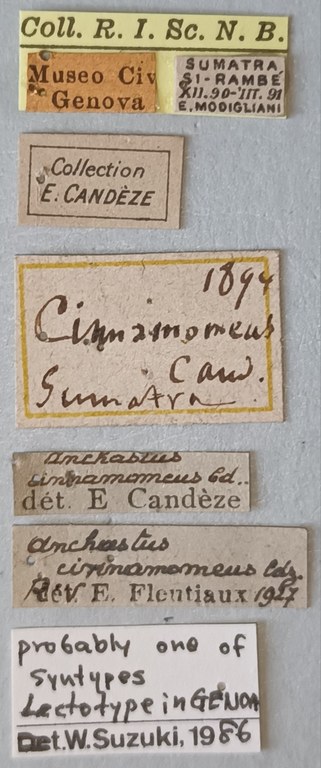 Coll. R. I. Sc. N. B.
Museo Civ
Genova
SUMATRA
SI-RAMBÉ
XII.90-III.91
E. MODIGLIANI
Collection
E. CANDÈZE
1894
Cinnamomeus
Cand.
Sumatra
Anchastus
cinnamomeus Cd..
dét. E Candèze
Anchastus
cinnamomeus Cdz.
dét. E. Fleutiaux 1927
probably one of
Syntypes
Lectotype in GENOA
Det. W. Suzuki, 1986